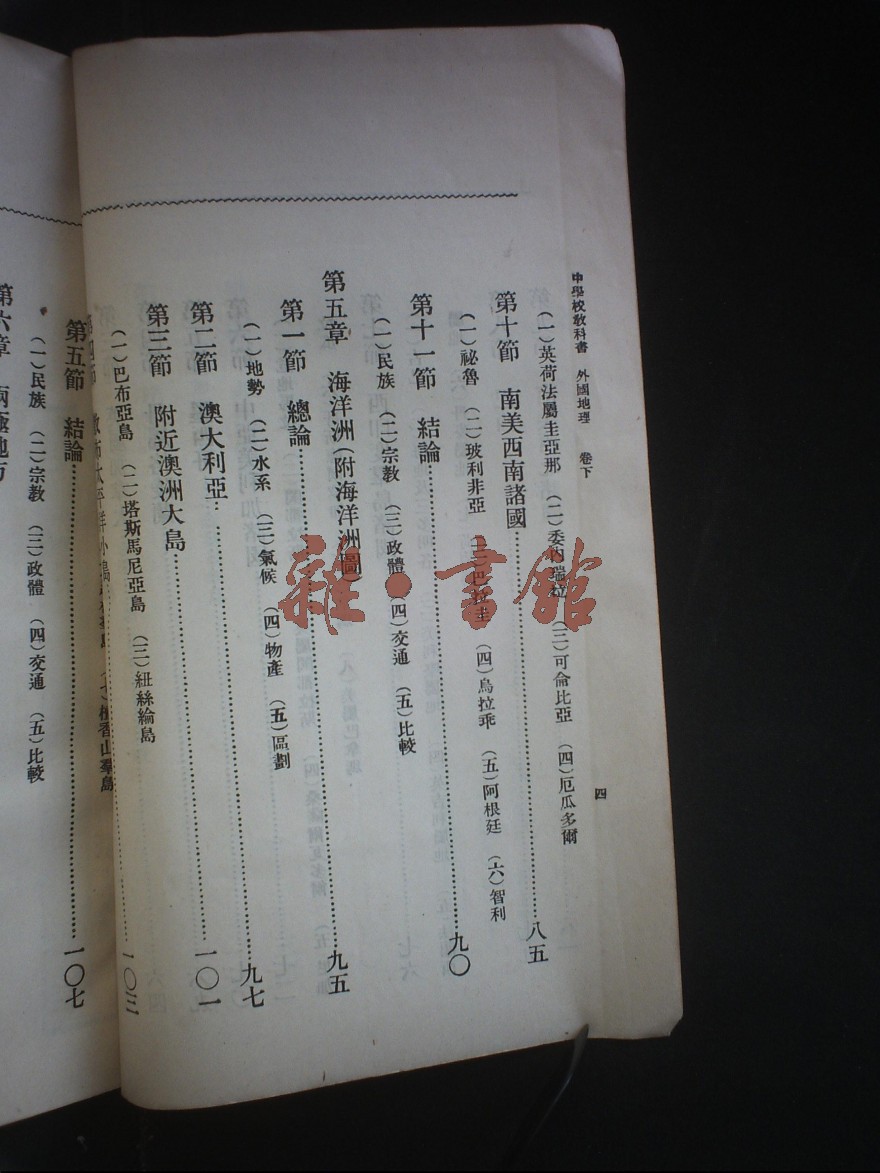 中學校教科書　外國地理　卷下　四
(一)英荷法屬圭亞那　(二)委內瑞拉　(三)可侖比亞　(四)厄瓜多爾
第十節　南美西南諸國……八五
(一)祕魯　(二)玻利非亞　(三)巴拉圭　(四)烏拉乖　(五)阿根廷　(六)智利
第十一節　結論……九〇
(一)民族　(二)宗教　(三)政體　(四)交通　(五)比較
第五章　海洋洲(附海洋洲圖)……九五
第一節　總論……九七
(一)地勢　(二)水系　(三)氣候　(四)物產　(五)區劃
第二節　澳大利亞……一〇一
第三節　附近澳洲大島……一〇三
(一)巴布亞島　(二)塔斯馬尼亞島　(三)紐絲綸島
第四節　散布太平洋小島
檀香山羣島
第五節　結論……一〇七
(一)民族　(二)宗教　(三)政體　(四)交通　(五)比較
第六章　兩極地方
雜·書館